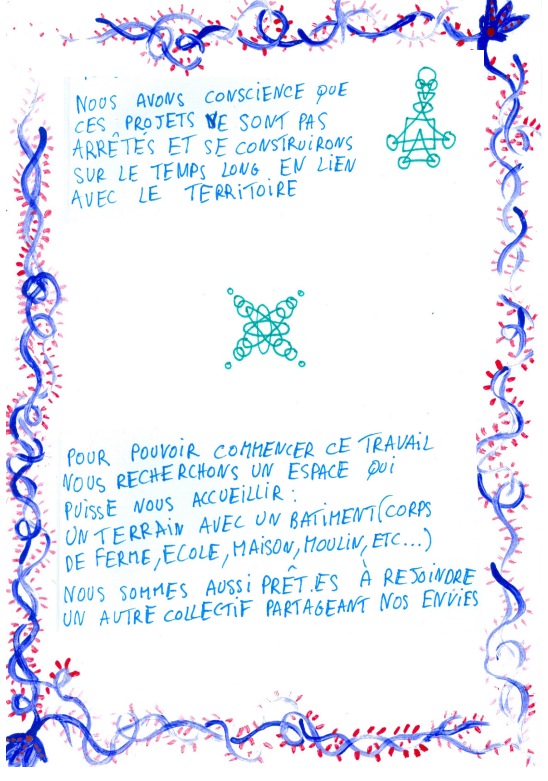 NOUS AVONS CONSCIENCE QUE
CES PROJETS NE SONT PAS
ARRÊTÉS ET SE CONSTRUIRONS
SUR LE TEMPS LONG EN LIEN
AVEC LE TERRITOIRE
POUR POUVOIR COMMENCER CE TRAVAIL
NOUS RECHERCHONS UN ESPACE QUI
PUISSE NOUS ACCUEILLIR :
UN TERRAIN AVEC UN BATIMENT (CORPS
DE FERME, ECOLE, MAISON, MOULIN, ETC...)
NOUS SOMMES AUSSI PRÊT.ES À REJOINDRE
UN AUTRE COLLECTIF PARTAGEANT NOS ENVIES